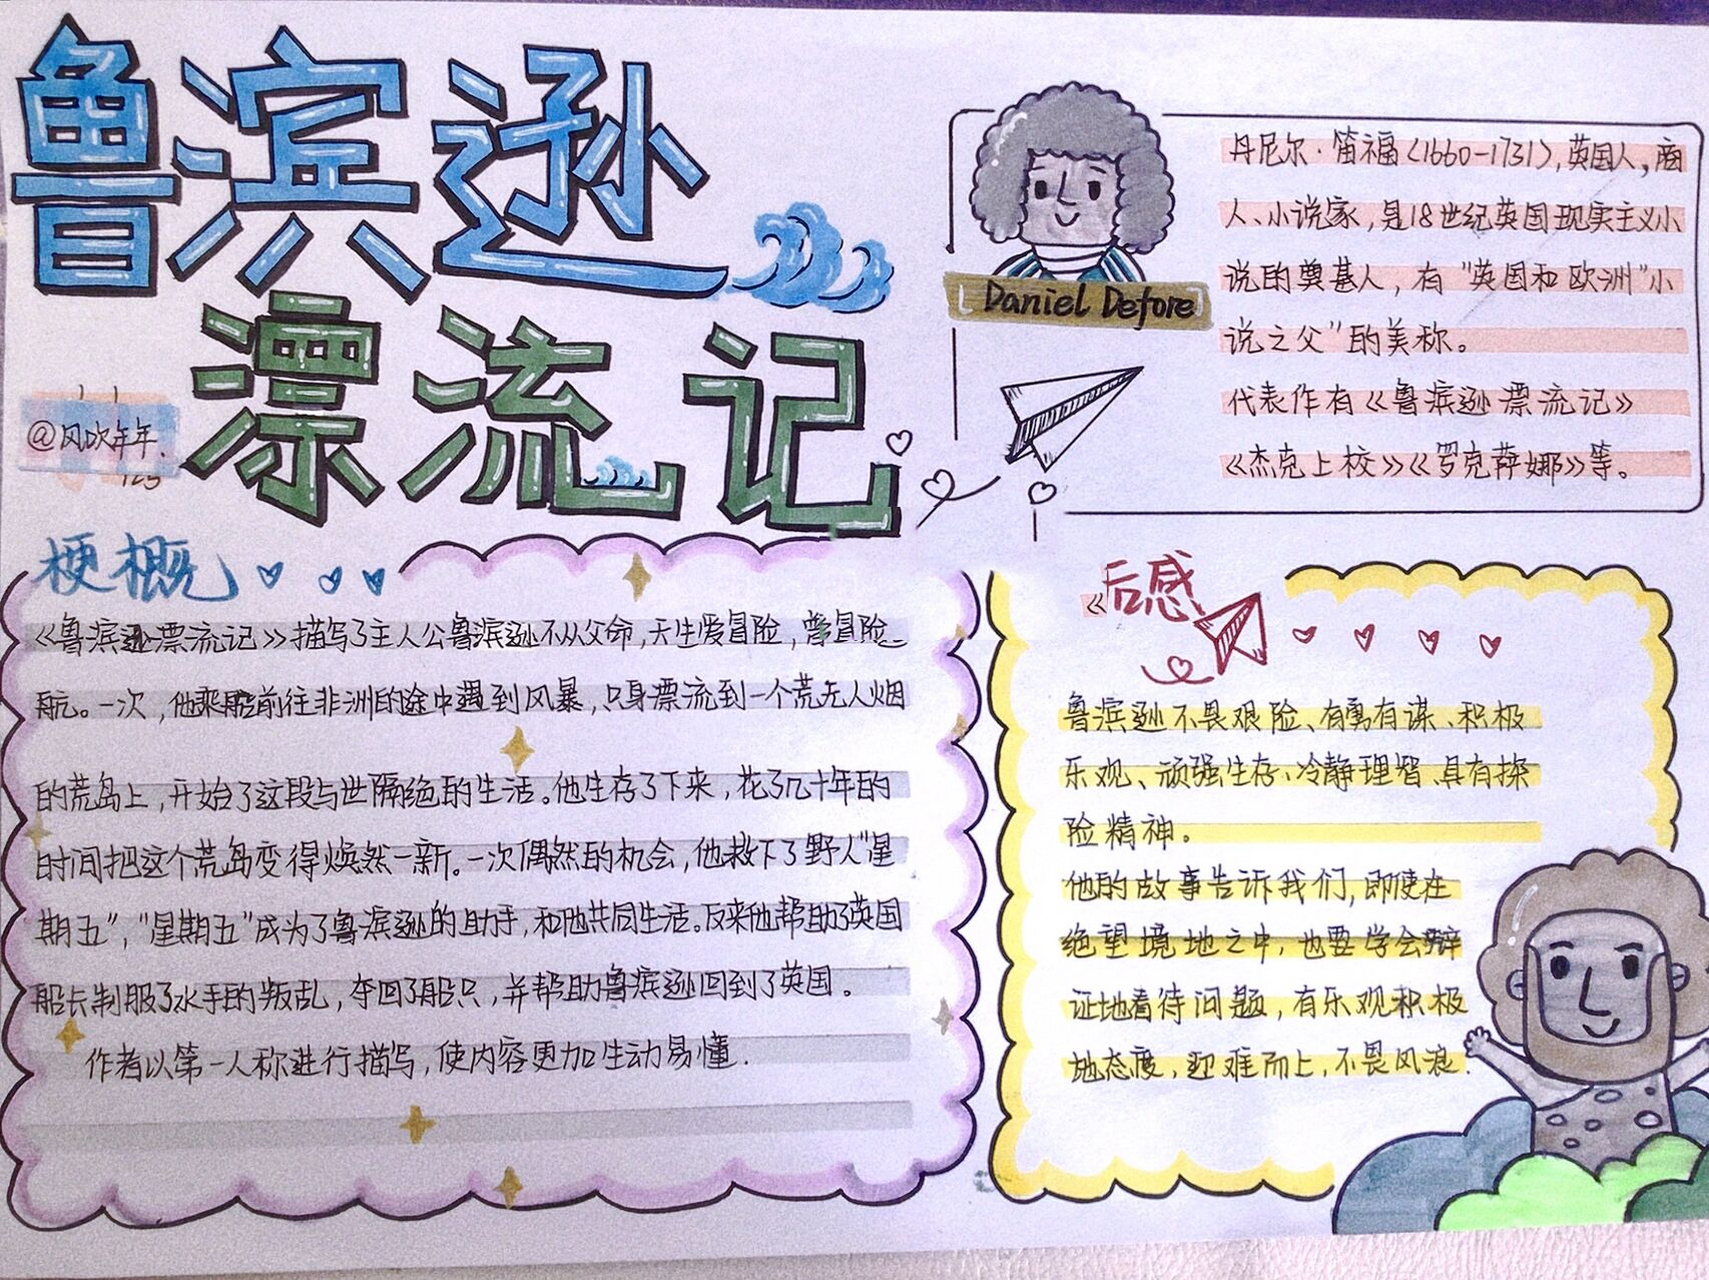 鲁滨逊
漂流记
@风吹年年.
丹尼尔·笛福(1660-1731),英国人,商
人、小说家,是18世纪英国现实主义小
说的奠基人,有“英国和欧洲”小
说之父”的美称。
代表作有《鲁滨逊漂流记》
《杰克上校》《罗克萨娜》等。
Daniel Defore
梗概
《鲁滨逊漂流记》描写了主人公鲁滨逊不从父命,天生爱冒险,曾冒险
航。一次,他乘船前往非洲的途中遇到风暴,只身漂流到一个荒无人烟
的荒岛上,开始了这段与世隔绝的生活。他生存了下来,花了几十年的
时间把这个荒岛变得焕然一新。一次偶然的机会,他救下了野人“星
期五”,“星期五”成为了鲁滨逊的助手,和他共同生活。反来他帮助了英国
船长制服了水手的叛乱,夺回了船只,并帮助鲁滨逊回到了英国。
作者以第一人称进行描写,使内容更加生动易懂.
《后感
鲁滨逊不畏艰险、有勇有谋、积极
乐观、顽强生存、冷静理智、具有探
险精神。
他的故事告诉我们,即使在
绝望境地之中,也要学会辩
证地看待问题,有乐观积极
地态度,迎难而上,不畏风浪.